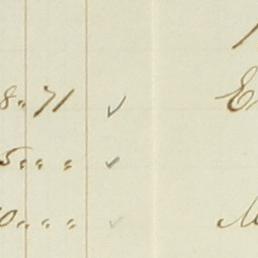 8 " 71 ✓ E
5 " " " ✓
0 " " " ✓ M